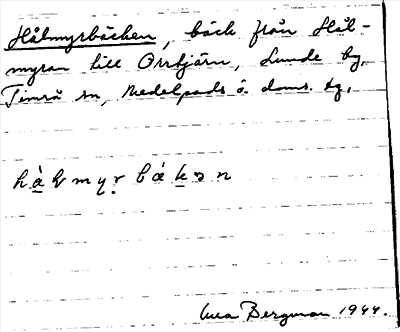 Hålmyrbäcken, bäck från Hål-
myran till Orrtjärn, Lunde by,
Timrå sn, Medelpads ö. doms. tg,
Bergman 1944.